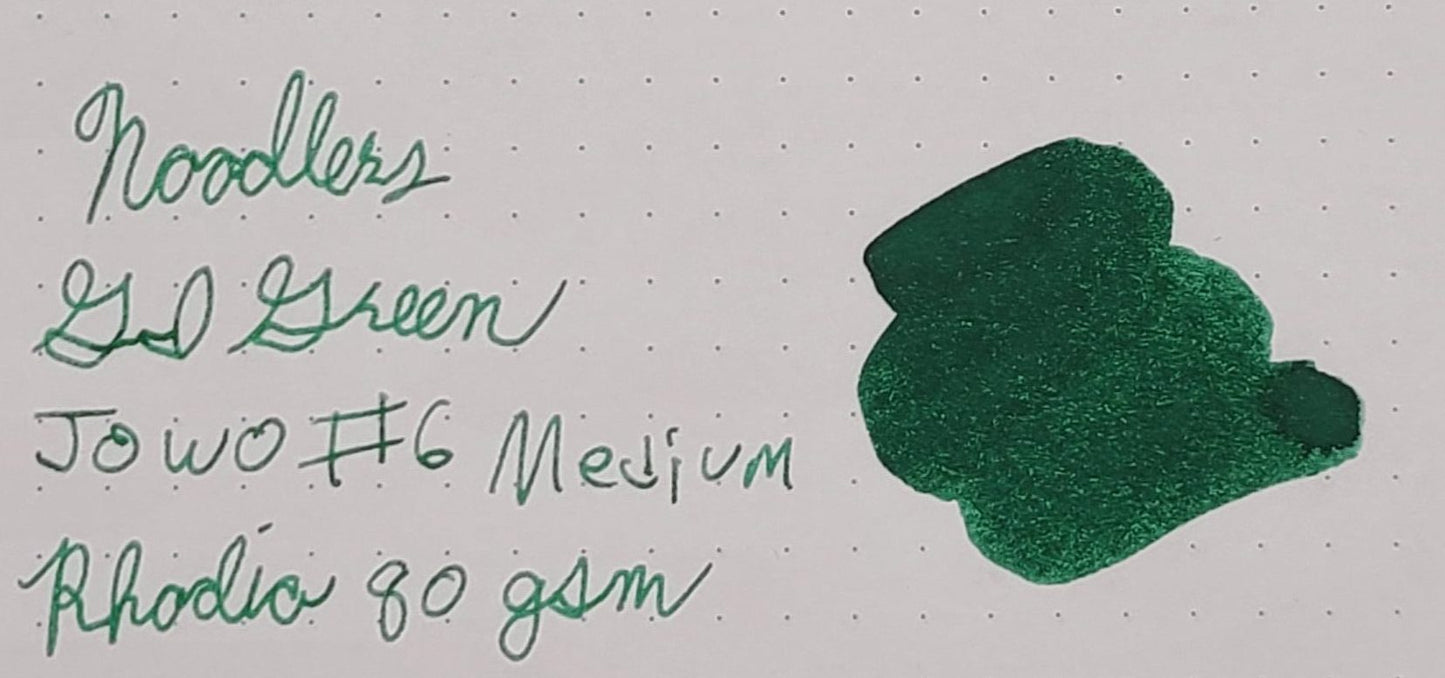 Noodlers
GI Green
Jowo #6 Medium
Rhodia 80 gsm